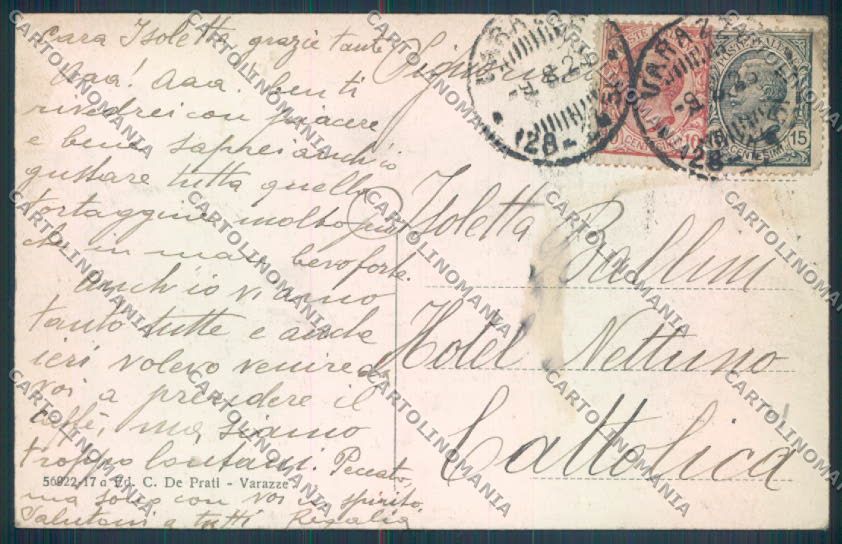 Cara Isoletta grazie tante
Aaa! Aaa. ben ti
rivedrei con piacere
e bene saprei anch'io
gustare tutta quella
molto più
che in mare
Anch'io vi amo
tanto tutte e anche
ieri volevo venire da
voi a prendere il
caffè, ma siamo
troppo lontani. Peccato,
ma sono con voi in spirito.
Salutoni a tutti Regalia
56922-17 a Ed. C. De Prati - Varazze
Signorina
Isoletta Ballini
Hotel Nettuno
Cattolica
VARAZZE
128
VARAZZE
128
POSTE ITALIANE
10
CENTESIMI
POSTE ITALIANE
15
CENTESIMI
CARTOLINOMANIA